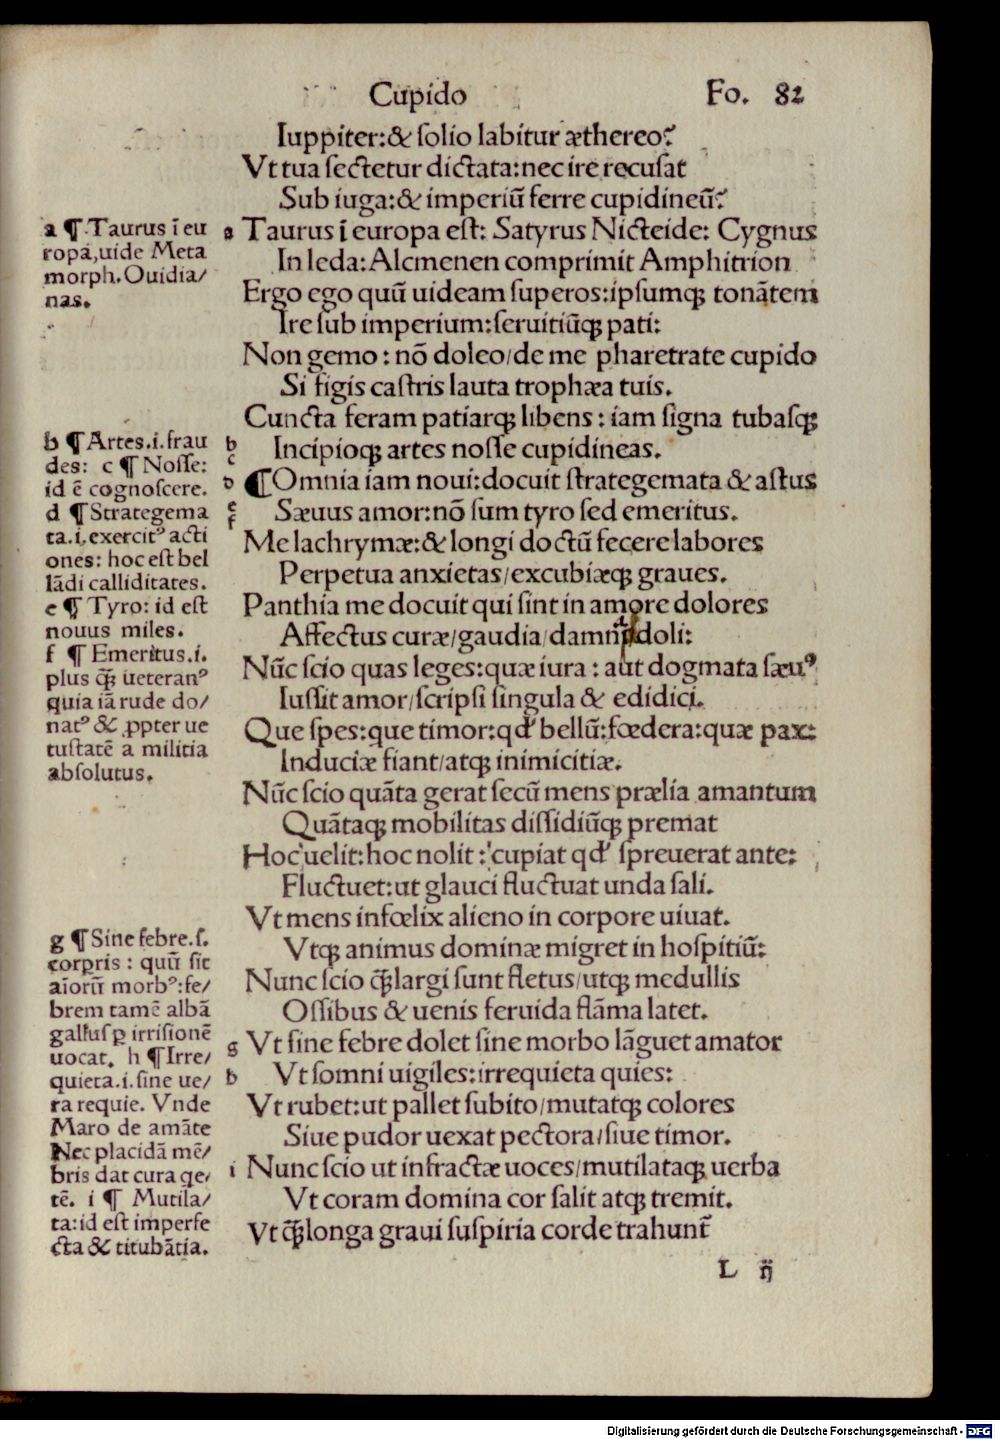 Cupido Fo. 82
Iuppiter:& ſolio labitur æthereo?
Vt tua ſectetur dictata:nec ire recuſat
Sub iuga:& imperiū ferre cupidineū?
a Taurus ī europa eſt: Satyrus Nicteide: Cygnus
In leda: Alcmenen comprimit Amphitrion
Ergo ego quū uideam ſuperos:ipſumqꝫ tonātem
Ire ſub imperium:ſeruitiūqꝫ pati:
Non gemo: nō doleo/de me pharetrate cupido
Si figis caſtris lauta trophæa tuis.
Cuncta feram patiarqꝫ libens: iam ſigna tubaſqꝫ
b c Incipioqꝫ artes noſſe cupidineas.
d ¶Omnia iam noui:docuit ſtrategemata & aſtus
e f Sæuus amor:nō ſum tyro ſed emeritus.
Me lachrymæ:& longi doctū fecere labores
Perpetua anxietas/excubiæqꝫ graues.
Panthia me docuit qui ſint in amore dolores
Affectus curæ/gaudia/damna doli:
Nūc ſcio quas leges:quæ iura: aut dogmata ſæuꝰ
Iuſſit amor/ſcripſi ſingula & edidici.
Que ſpes:que timor:qd' bellū:fœdera:quæ pax:
Induciæ fiant/atqꝫ inimicitiæ.
Nūc ſcio quāta gerat ſecū mens prælia amantum
Quātaqꝫ mobilitas diſſidiūqꝫ premat
Hoc uelit:hoc nolit: cupiat qd' ſpreuerat ante:
Fluctuet:ut glauci fluctuat unda ſali.
Vt mens infœlix alieno in corpore uiuat.
Vtqꝫ animus dominæ migret in hoſpitiū:
Nunc ſcio q̄ꝫ largi ſunt fletus/utqꝫ medullis
Oſſibus & uenis feruida flāma latet.
g Vt ſine febre dolet ſine morbo lāguet amator
h Vt ſomni uigiles:irrequieta quies:
Vt rubet:ut pallet ſubito/mutatqꝫ colores
Siue pudor uexat pectora/ſiue timor.
i Nunc ſcio ut infractæ uoces/mutilataqꝫ uerba
Vt coram domina cor ſalit atqꝫ tremit.
Vt q̄ꝫ longa graui ſuſpiria corde trahunt
L ij
a ¶ Taurus ī eu
ropa,uide Meta
morph. Ouidia/
nas.
b ¶ Artes.i.frau
des: c ¶ Noſſe:
id ē cognoſcere.
d ¶ Strategema
ta.i.exercitꝰ acti
ones: hoc eſt bel
lādi calliditates.
e ¶ Tyro: id eſt
nouus miles.
f ¶ Emeritus.i.
plus q̄ꝫ ueteranꝰ
quia iā rude do/
natꝰ & ꝓpter ue
tuſtatē a militia
abſolutus.
g ¶ Sine febre.ſ.
corpris: quū ſit
aīorū morbꝰ:fe/
brem tamē albā
gallus ꝑ irriſionē
uocat. h ¶ Irre/
quieta.i.ſine ue/
ra requie. Vnde
Maro de amāte
Nec placidā mē/
bris dat cura qe/
tē. i ¶ Mutila/
ta:id eſt imperfe
cta & titubātia.
Digitalisierung gefördert durch die Deutsche Forschungsgemeinschaft - DFG